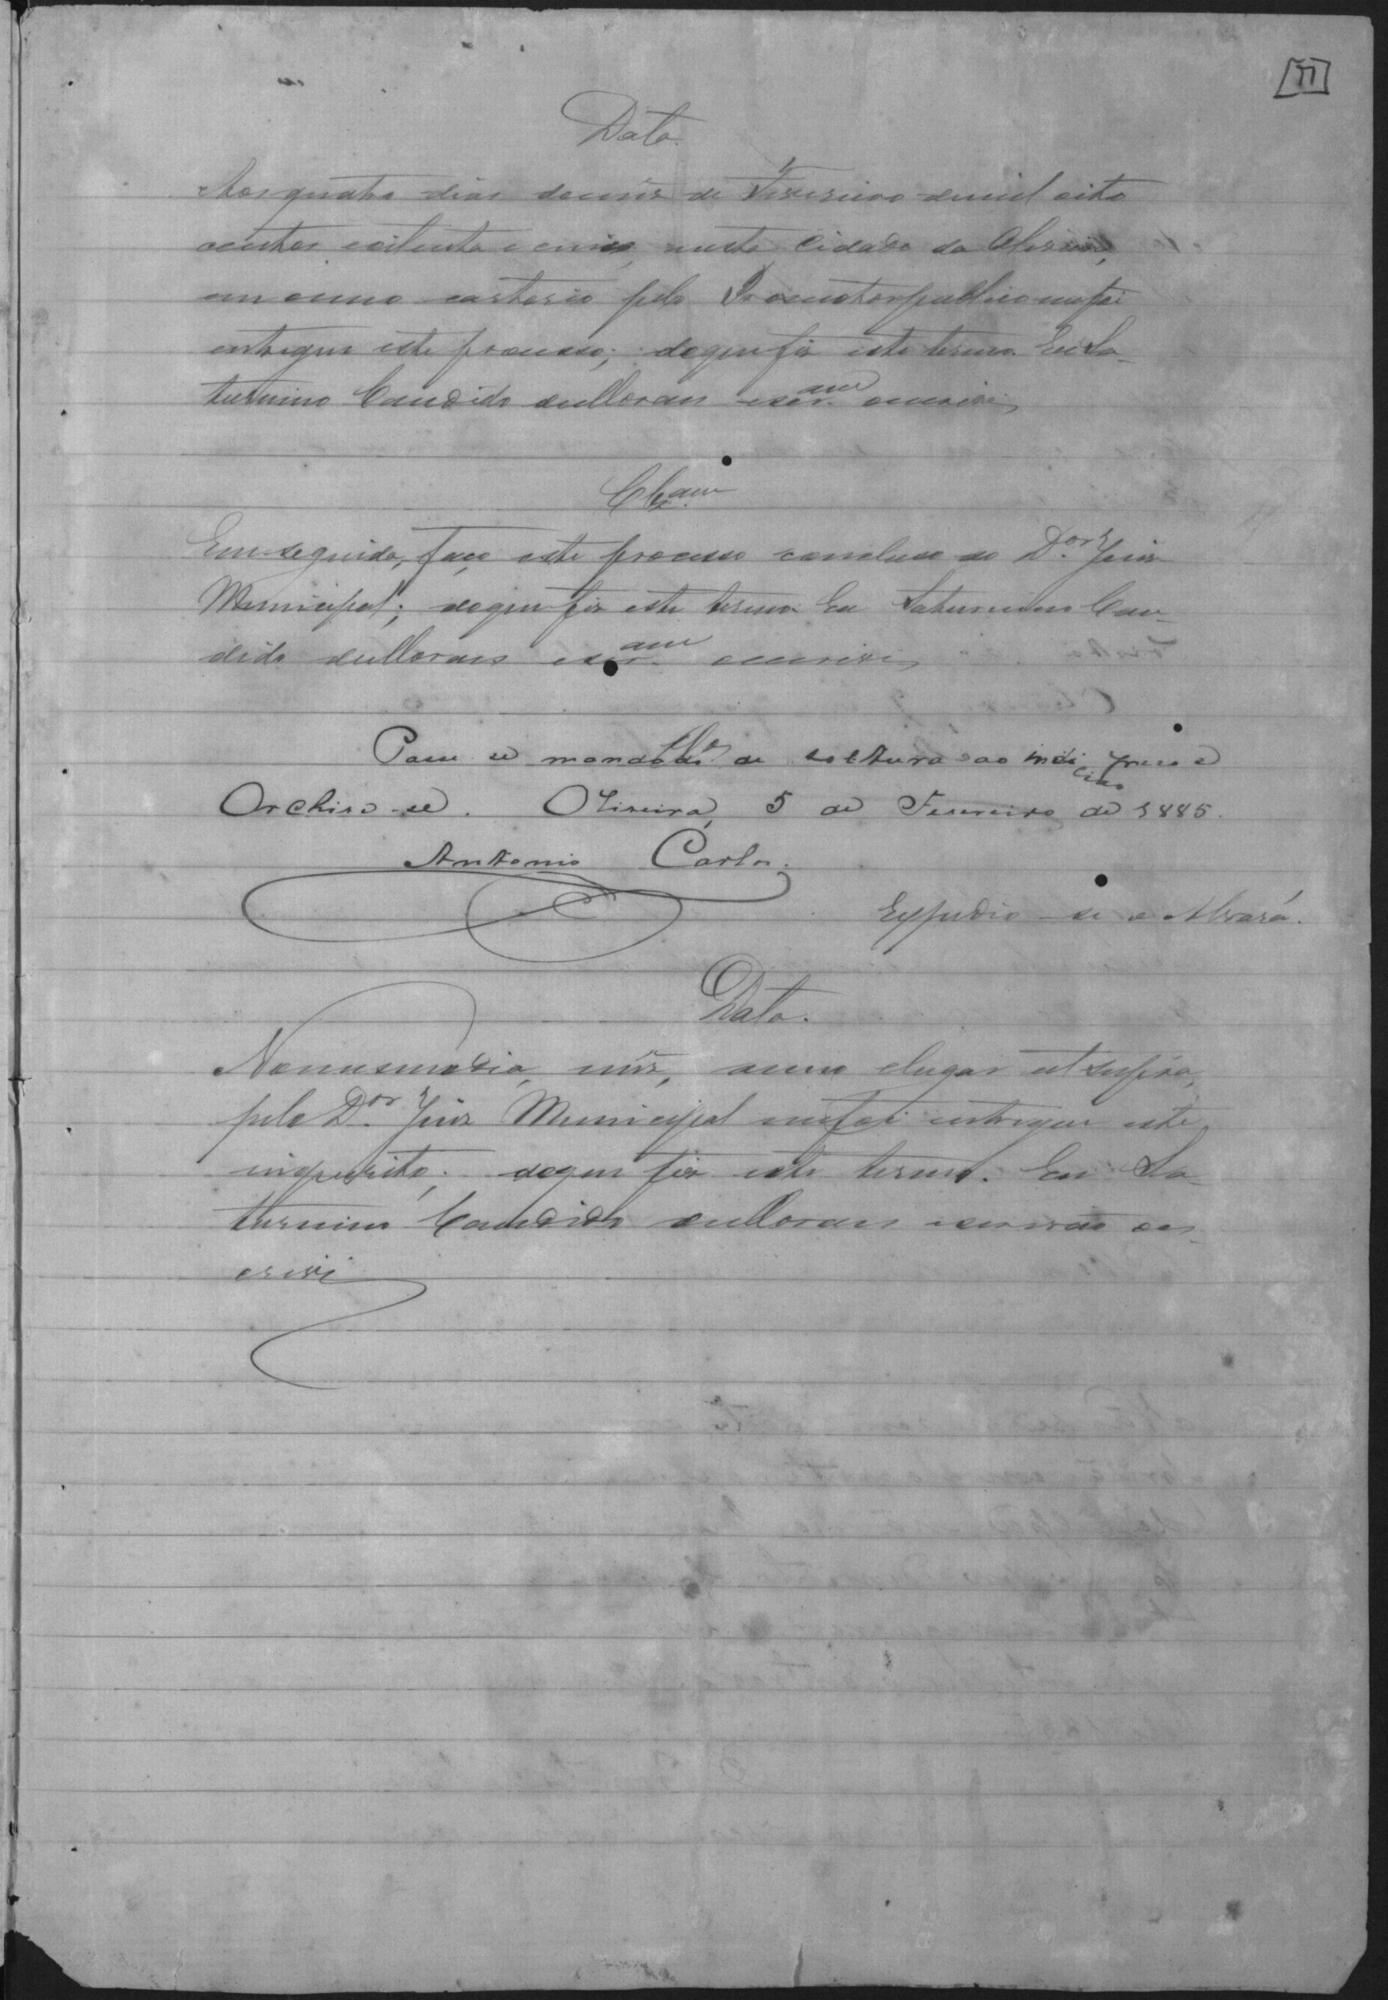 [11]
Data
Aos quatro dias do mes de Fevereiro de mil oito
centos e oitenta e cinco, nesta Cidade da Oliveira,
em meu cartorio pelo Promotor publico me foi
entregue este processo; do que fiz este termo. Eu Sa-
turnino Candido de Moraes escr.am o escrevi,
Cls.am
Em seguida, faço este processo concluso ao D.or Juiz
Municipal; do que fiz este termo. Eu Saturnino Can-
dido de Moraes escr.am o escrevi,
Passe se mandado de soltura ao indiciado preso e
Archive-se. Oliveira, 5 de Fevereiro de 1885.
Antonio Carlos.
Expedio-se o Alvará.
Data.
No mesmo dia, mes, anno e lugar ut supra,
pelo D.or Juiz Municipal me foi entregue este
inquerito; do que fiz este termo. Eu Sa-
turnino Candido de Moraes escrivão o es-
crevi